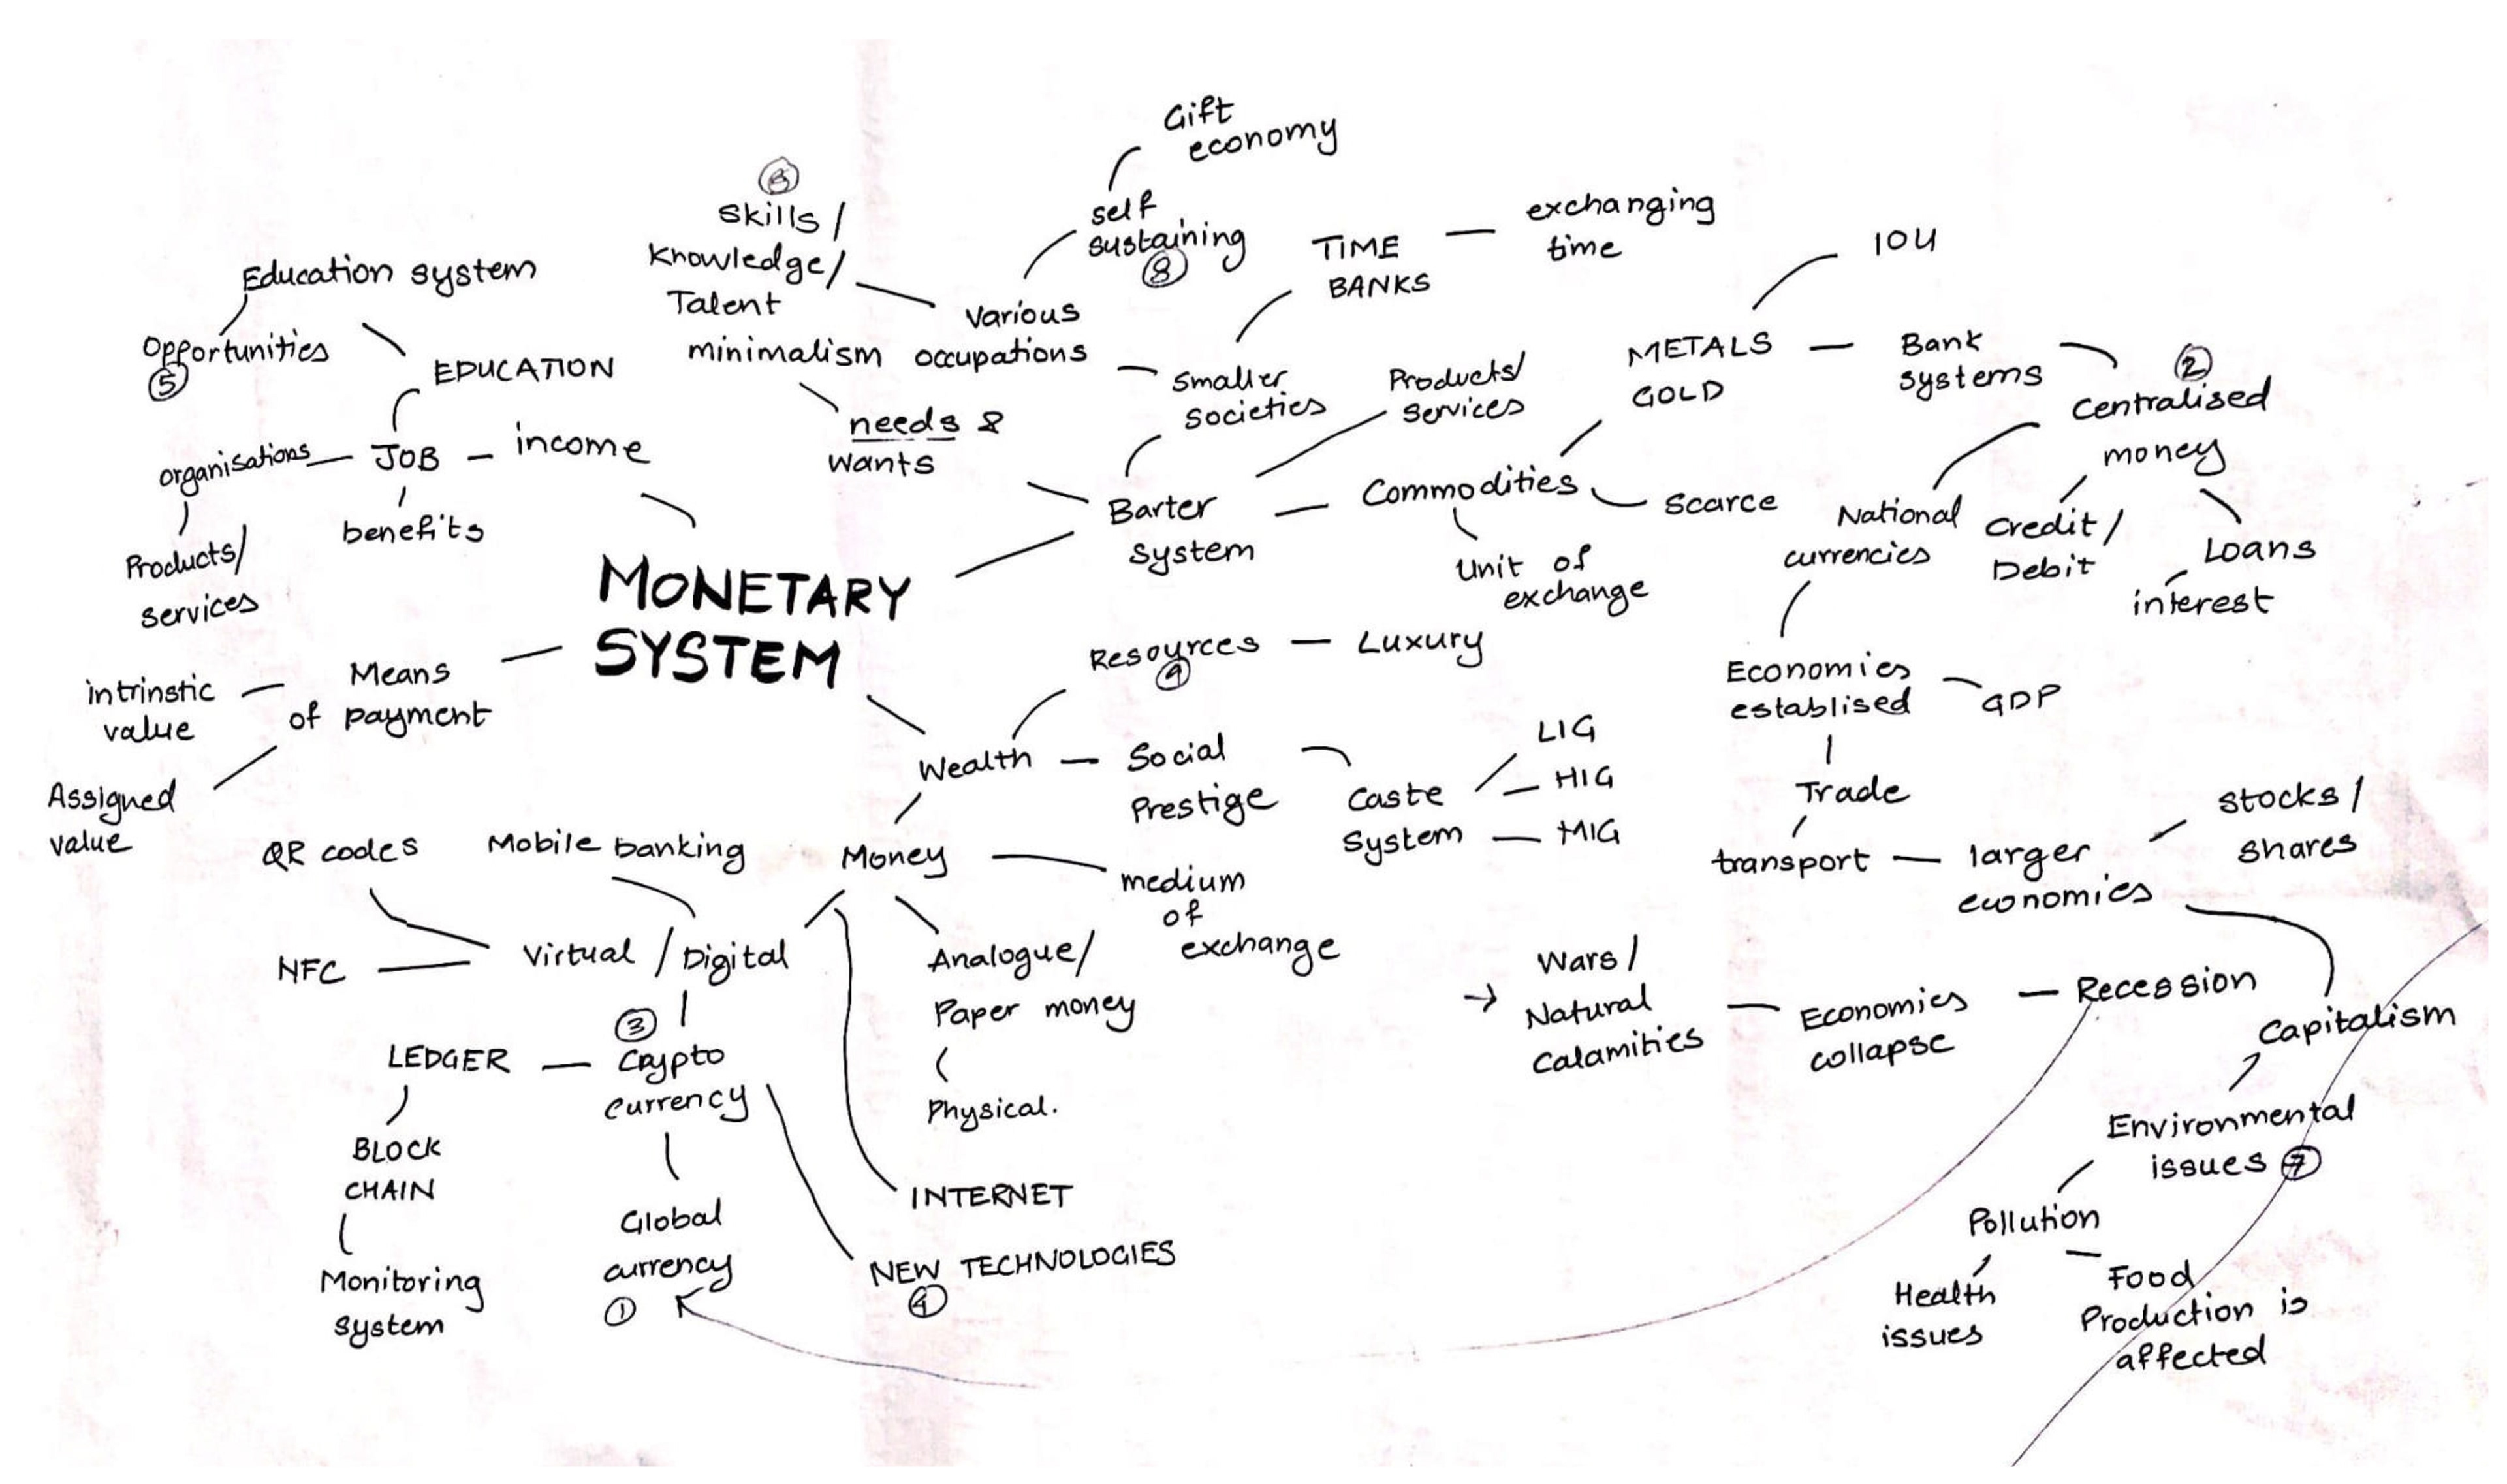 Gift
economy
⑥
Skills /
Knowledge /
Talent
self
sustaining
⑧
TIME
BANKS
exchanging
time
IOU
Education system
Opportunities
⑤
EDUCATION
various
occupations
minimalism
needs &
wants
smaller
societies
Products/
services
METALS
GOLD
Bank
systems
②
Centralised
money
organisations
JOB
income
benefits
Products/
services
Barter
system
Commodities
Scarce
Unit of
exchange
National
currencies
Credit /
Debit
Loans
interest
MONETARY
SYSTEM
Means
of payment
intrinstic
value
Assigned
value
Resources
⑨
Luxury
Wealth
Social
Prestige
Caste
System
LIG
HIG
MIG
Economies
establised
GDP
Trade
transport
larger
economies
stocks /
shares
QR codes
Mobile banking
Money
medium
of
exchange
NFC
Virtual / Digital
Analogue/
Paper money
Physical.
→ Wars /
Natural
Calamities
Economies
collapse
Recession
Capitalism
③
LEDGER
Crypto
Currency
BLOCK
CHAIN
Monitoring
System
Global
currency
①
INTERNET
NEW TECHNOLOGIES
④
Environmental
issues ⑦
Pollution
Health
issues
Food
Production is
affected